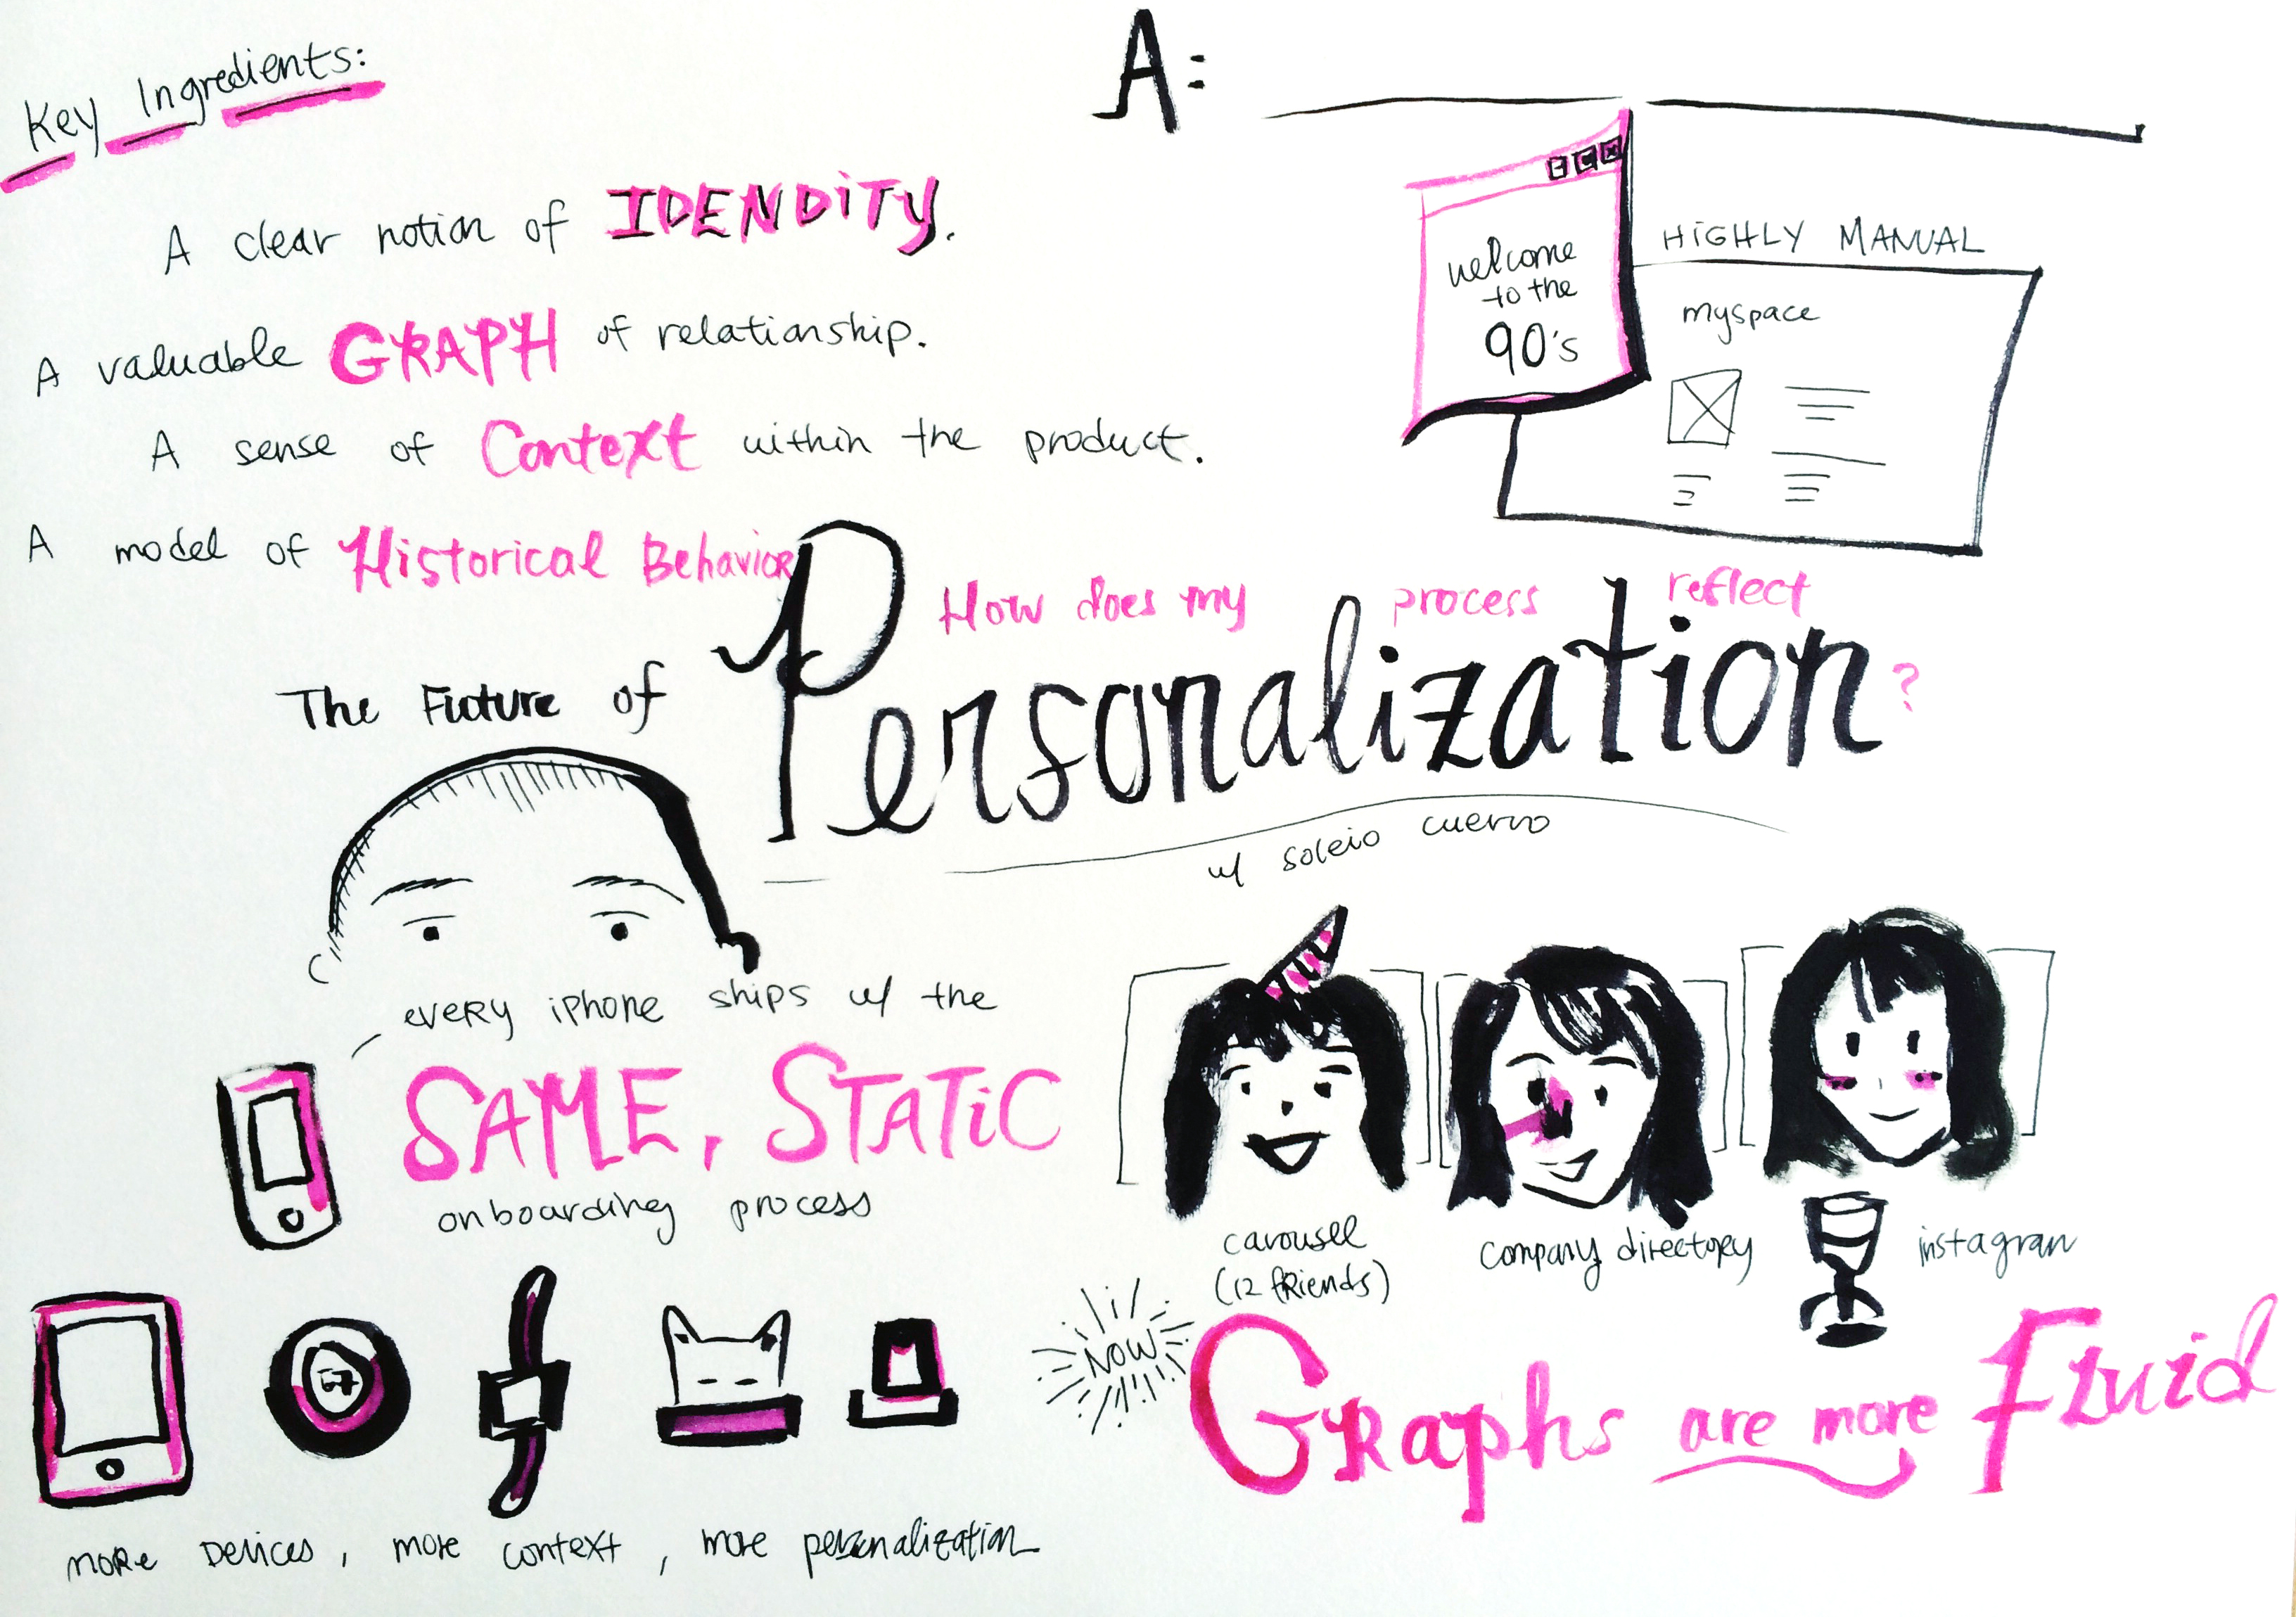 Key Ingredients:
A clear notion of IDENDiTY.
A valuable GRAPH of relationship.
A sense of Context within the product.
A model of Historical Behavior
A:
welcome
to the
90's
HiGHLY MANUAL
myspace
How does my process reflect
The Future of Personalization?
w/ soleio cuervo
every iphone ships w/ the
SAME, STATiC
onboarding process
67
more Devices, more context, more personalization
carousel
(12 friends)
company directory
instagram
NOW
Graphs are more Fluid